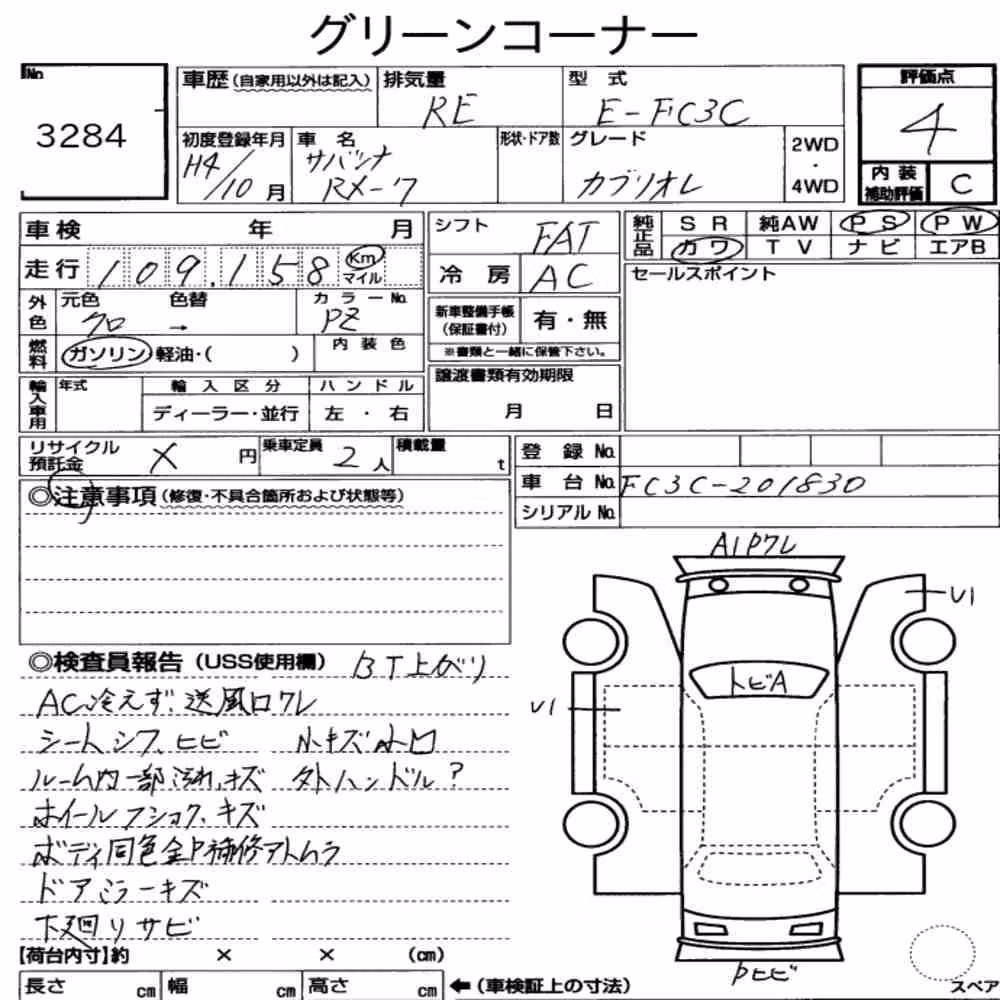 グリーンコーナー
No.
3284
車歴(自家用以外は記入)
排気量
RE
型式
E-FC3C
評価点
4
初度登録年月
H4/10月
車名
サバンナ
RX-7
形状・ドア数
グレード
カブリオレ
2WD
・
4WD
内装
補助評価
C
車検 年 月
走行 109,158 Km マイル
シフト
FAT
冷房
AC
純正品
SR 純AW PS PW
カワ TV ナビ エアB
セールスポイント
外色
元色 色替
クロ →
カラーNo.
PZ
新車整備手帳
(保証書付)
有・無
※書類と一緒に保管下さい。
燃料
ガソリン・軽油・( )
内装色
譲渡書類有効期限
月 日
輸入車用
年式
輸入区分
ディーラー・並行
ハンドル
左・右
リサイクル
預託金
X 円
乗車定員
2人
積載量
t
登録No.
車台No. FC3C-201830
シリアルNo.
◎注意事項(修復・不具合箇所および状態等)
A1Pワレ
U1
トビA
U1
Pヒビ
スペア
◎検査員報告(USS使用欄) BT上がり
AC冷えず、送風口ワレ
シートシワ、ヒビ 小キズ小凹
ルーム内一部汚れ、キズ 外ハンドル?
ホイールフショク、キズ
ボディ同色全P補修アトムラ
ドアミラーキズ
下廻りサビ
【荷台内寸】約 × × (cm)
長さ cm 幅 cm 高さ cm ←(車検証上の寸法)